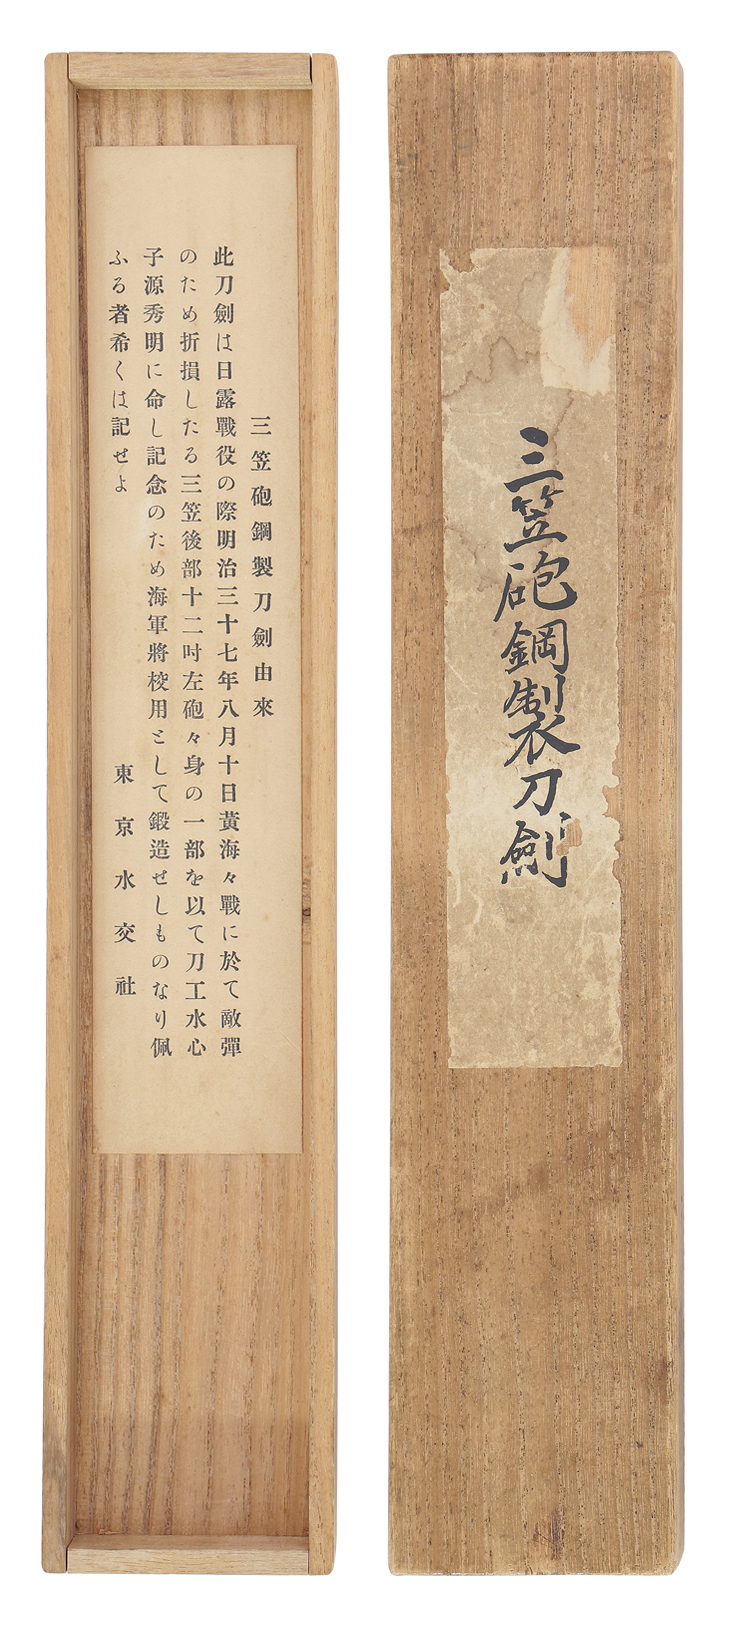 三笠砲鋼製刀劍由來
此刀劍は日露戰役の際明治三十七年八月十日黃海々戰に於て敵彈
のため折損したる三笠後部十二吋左砲々身の一部を以て刀工水心
子源秀明に命し記念のため海軍將校用として鍛造せしものなり佩
ふる者希くは記せよ
東京水交社
三笠砲鋼製刀劍